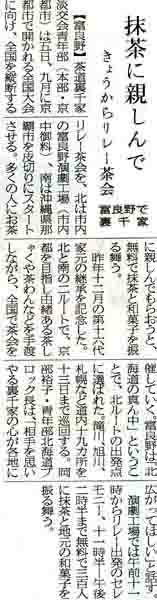 抹茶に親しんで
きょうからリレー茶会
富良野で
裏千家
【富良野】茶道裏千家
淡交会青年部（本部・京
都市）は五日、九月に京
都市で開かれる全国大会
に向け、全国を縦断する
リレー茶会を、北は市内
の富良野演劇工場（市内
中御料）、南は沖縄県那
覇市を皮切りにスタート
させる。多くの人にお茶
に親しんでもらおうと、
無料で抹茶と和菓子を振
る舞う。
昨年十二月の第十六代
家元の継承を記念した。
北と南の二ルートで、京
都を目指し由緒ある茶し
ゃくや茶わんなどを手渡
しながら、全国で茶会を
催していく。富良野は「北
海道の真ん中」というこ
とで、北ルートの出発点
に選ばれた。滝川、旭川、
札幌など道内十九カ所を
十三日まで巡回する。岡
部裕子・青年部北海道ブ
ロック長は「相手を思い
やる裏千家の心が各地に
広がってほしい」と話す。
演劇工場では午前十一
時からリレー出発のセレ
モニー、十一時半―午後
二時半まで無料で三百人
に抹茶と地元の和菓子を
振る舞う。